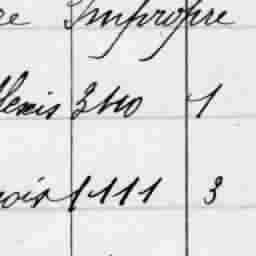 re Impropre
lexis 3110 1
nois 1111 3